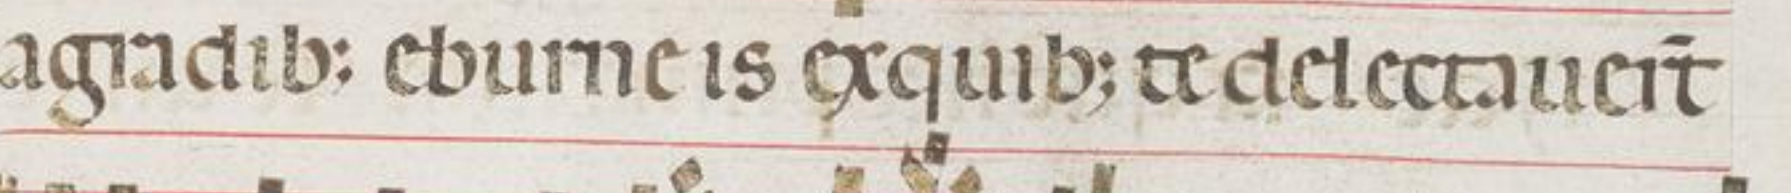 agradib; eburneis exquib; te delectauer̄t